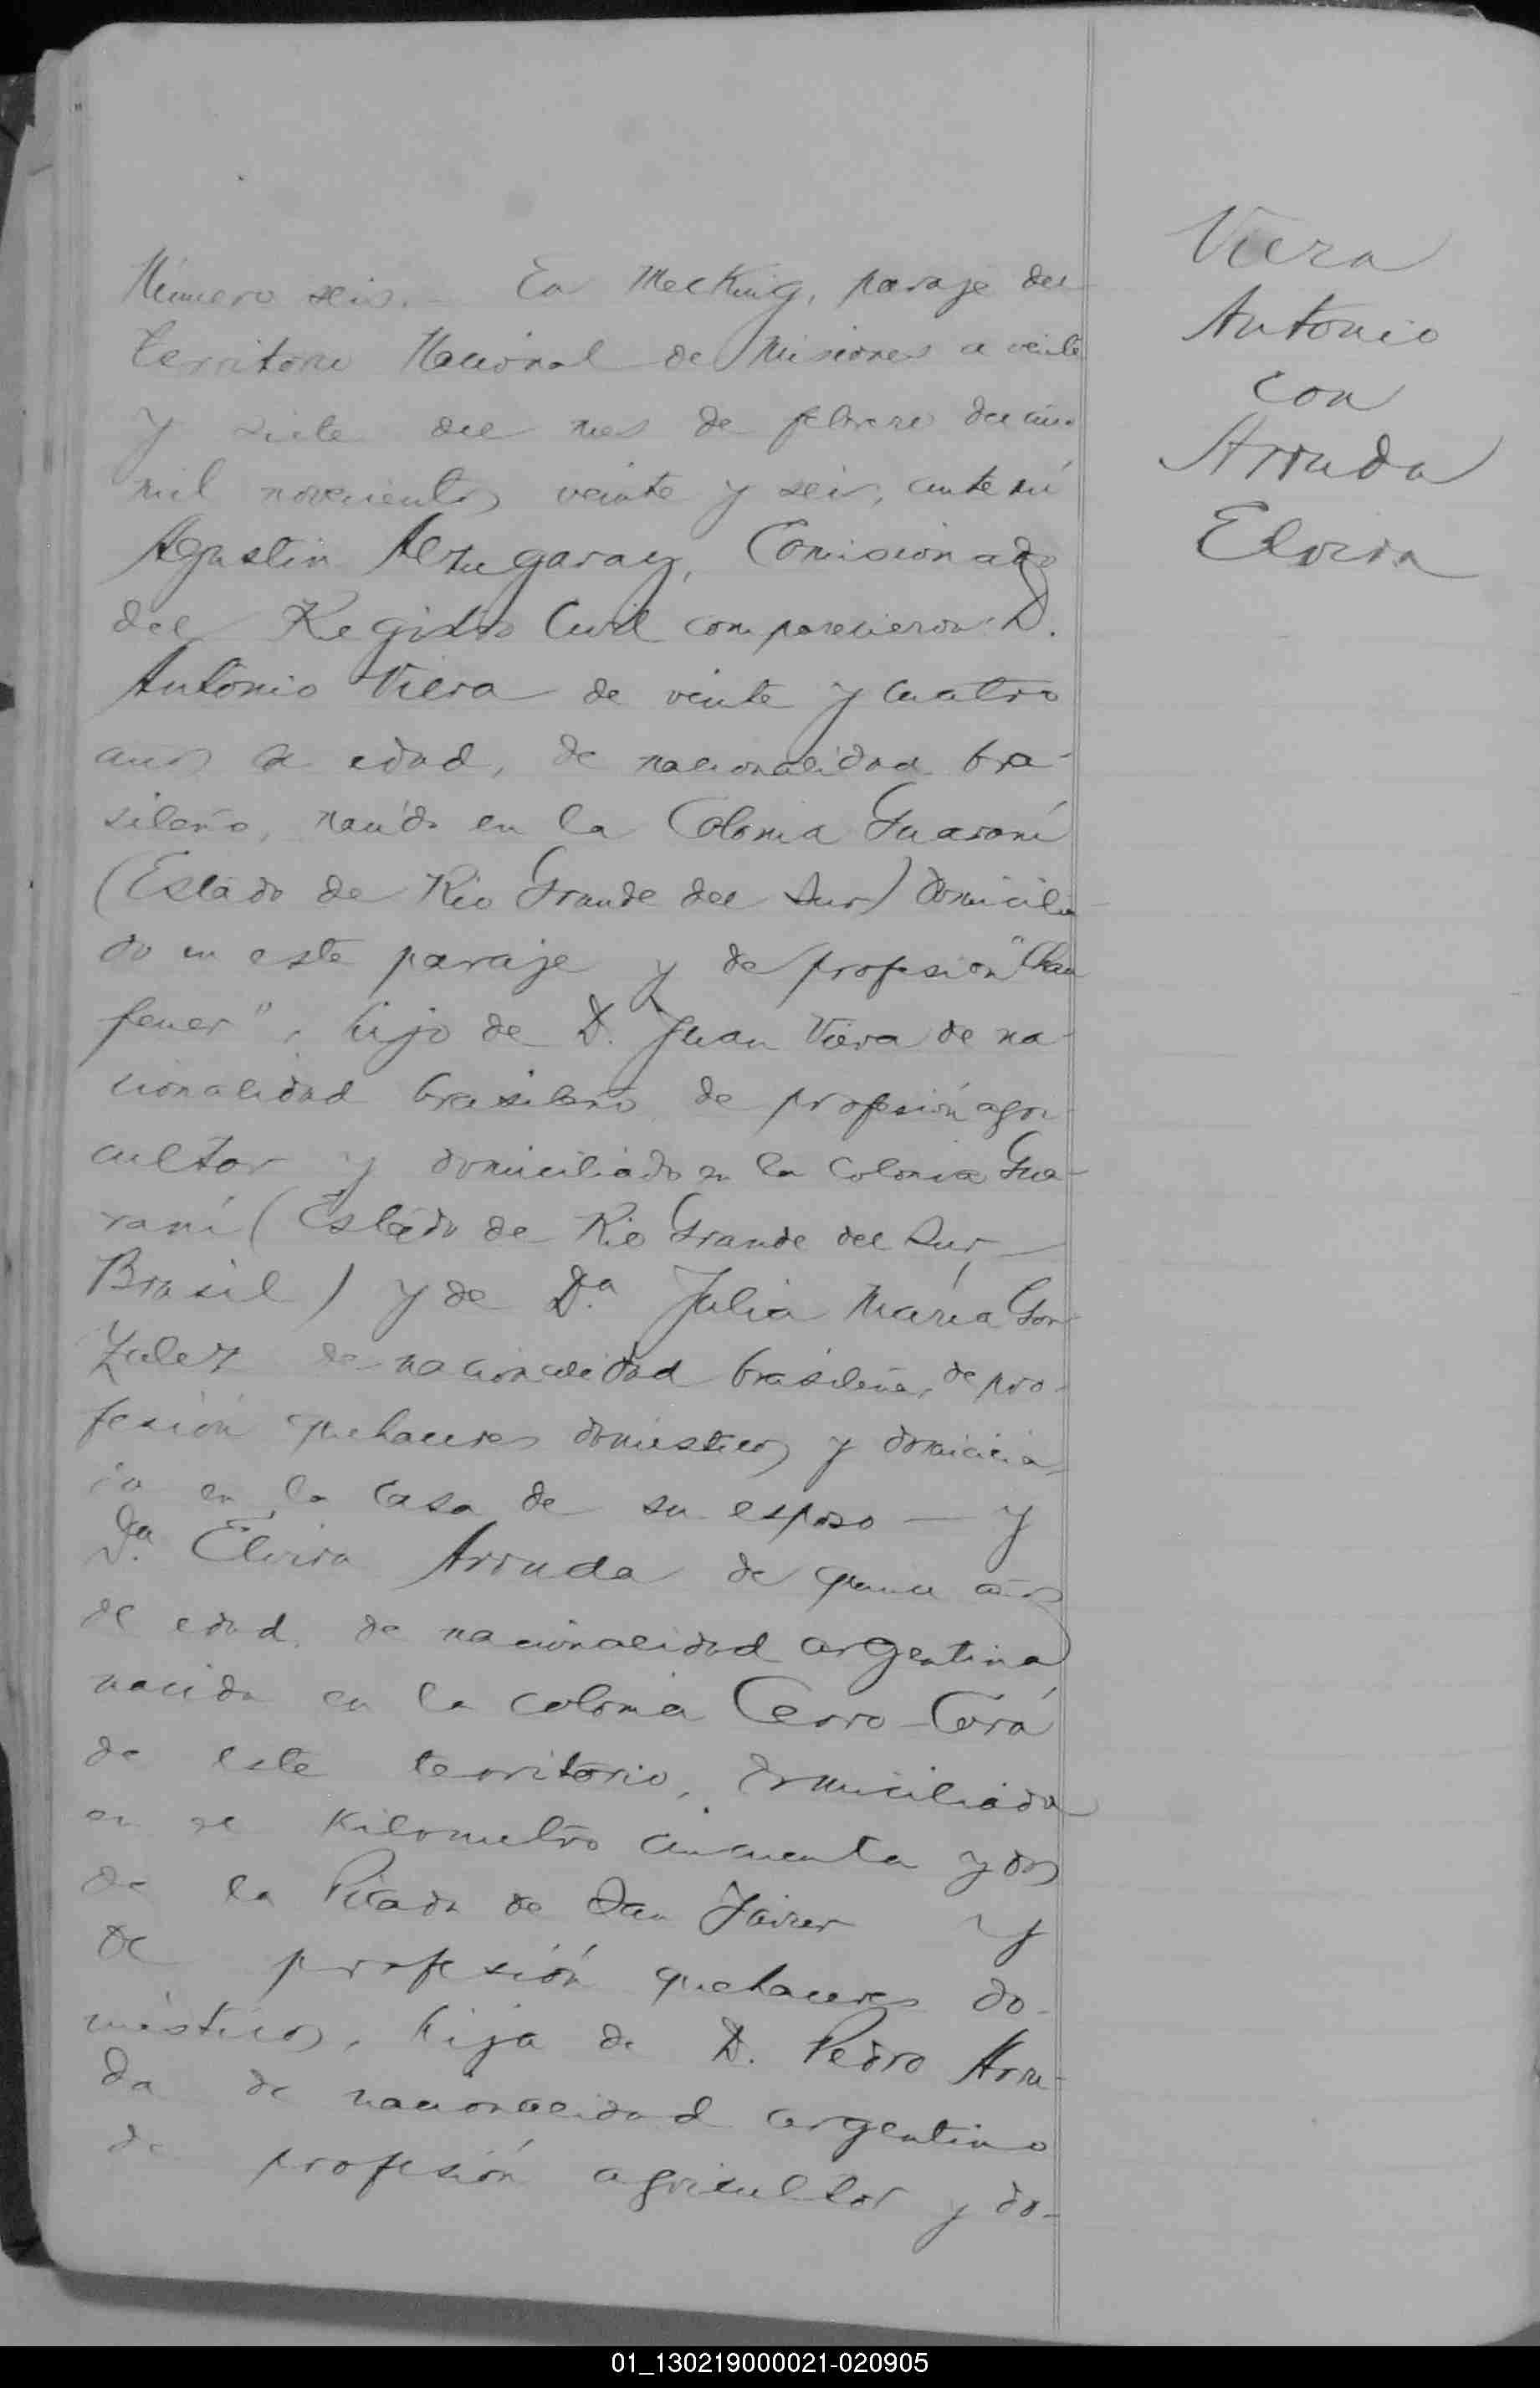 Viera
Antonio
con
Arruda
Elvira
Número seis.- En Mecking, paraje del
territorio Nacional de Misiones a veinte
y siete del mes de febrero del año
mil novecientos veinte y seis, ante mí
Agustin Alzugaray, Comisionado
del Registro Civil comparecieron: D.
Antonio Viera de veinte y cuatro
años de edad, de nacionalidad bra-
sileño, nacido en la Colonia Guaraní
(Estado de Rio Grande del Sur) domicilia
do en este paraje y de profesion "Chau
feuer", hijo de D. Juan Viera de na-
cionalidad brasileño de profesión agri-
cultor y domiciliado en la Colonia Gua-
raní (Estado de Rio Grande del Sur, —
Brasil) y de Da. Julia María Gon
zalez de nacionalidad brasileña, de pro-
fesión quehaceres domésticos y domicilia
da en la casa de su esposo — y
Da. Elvira Arruda de quince años
de edad, de nacionalidad argentina
nacida en la colonia Cerro-Corá
de este territorio, domiciliada
en el Kilometro cincuenta y dos
de la Picada de San Javier y
de profesión quehaceres do-
mésticos, hija de D. Pedro Arru-
da de nacionalidad argentino
de profesión agricultor y do-
01_130219000021-020905